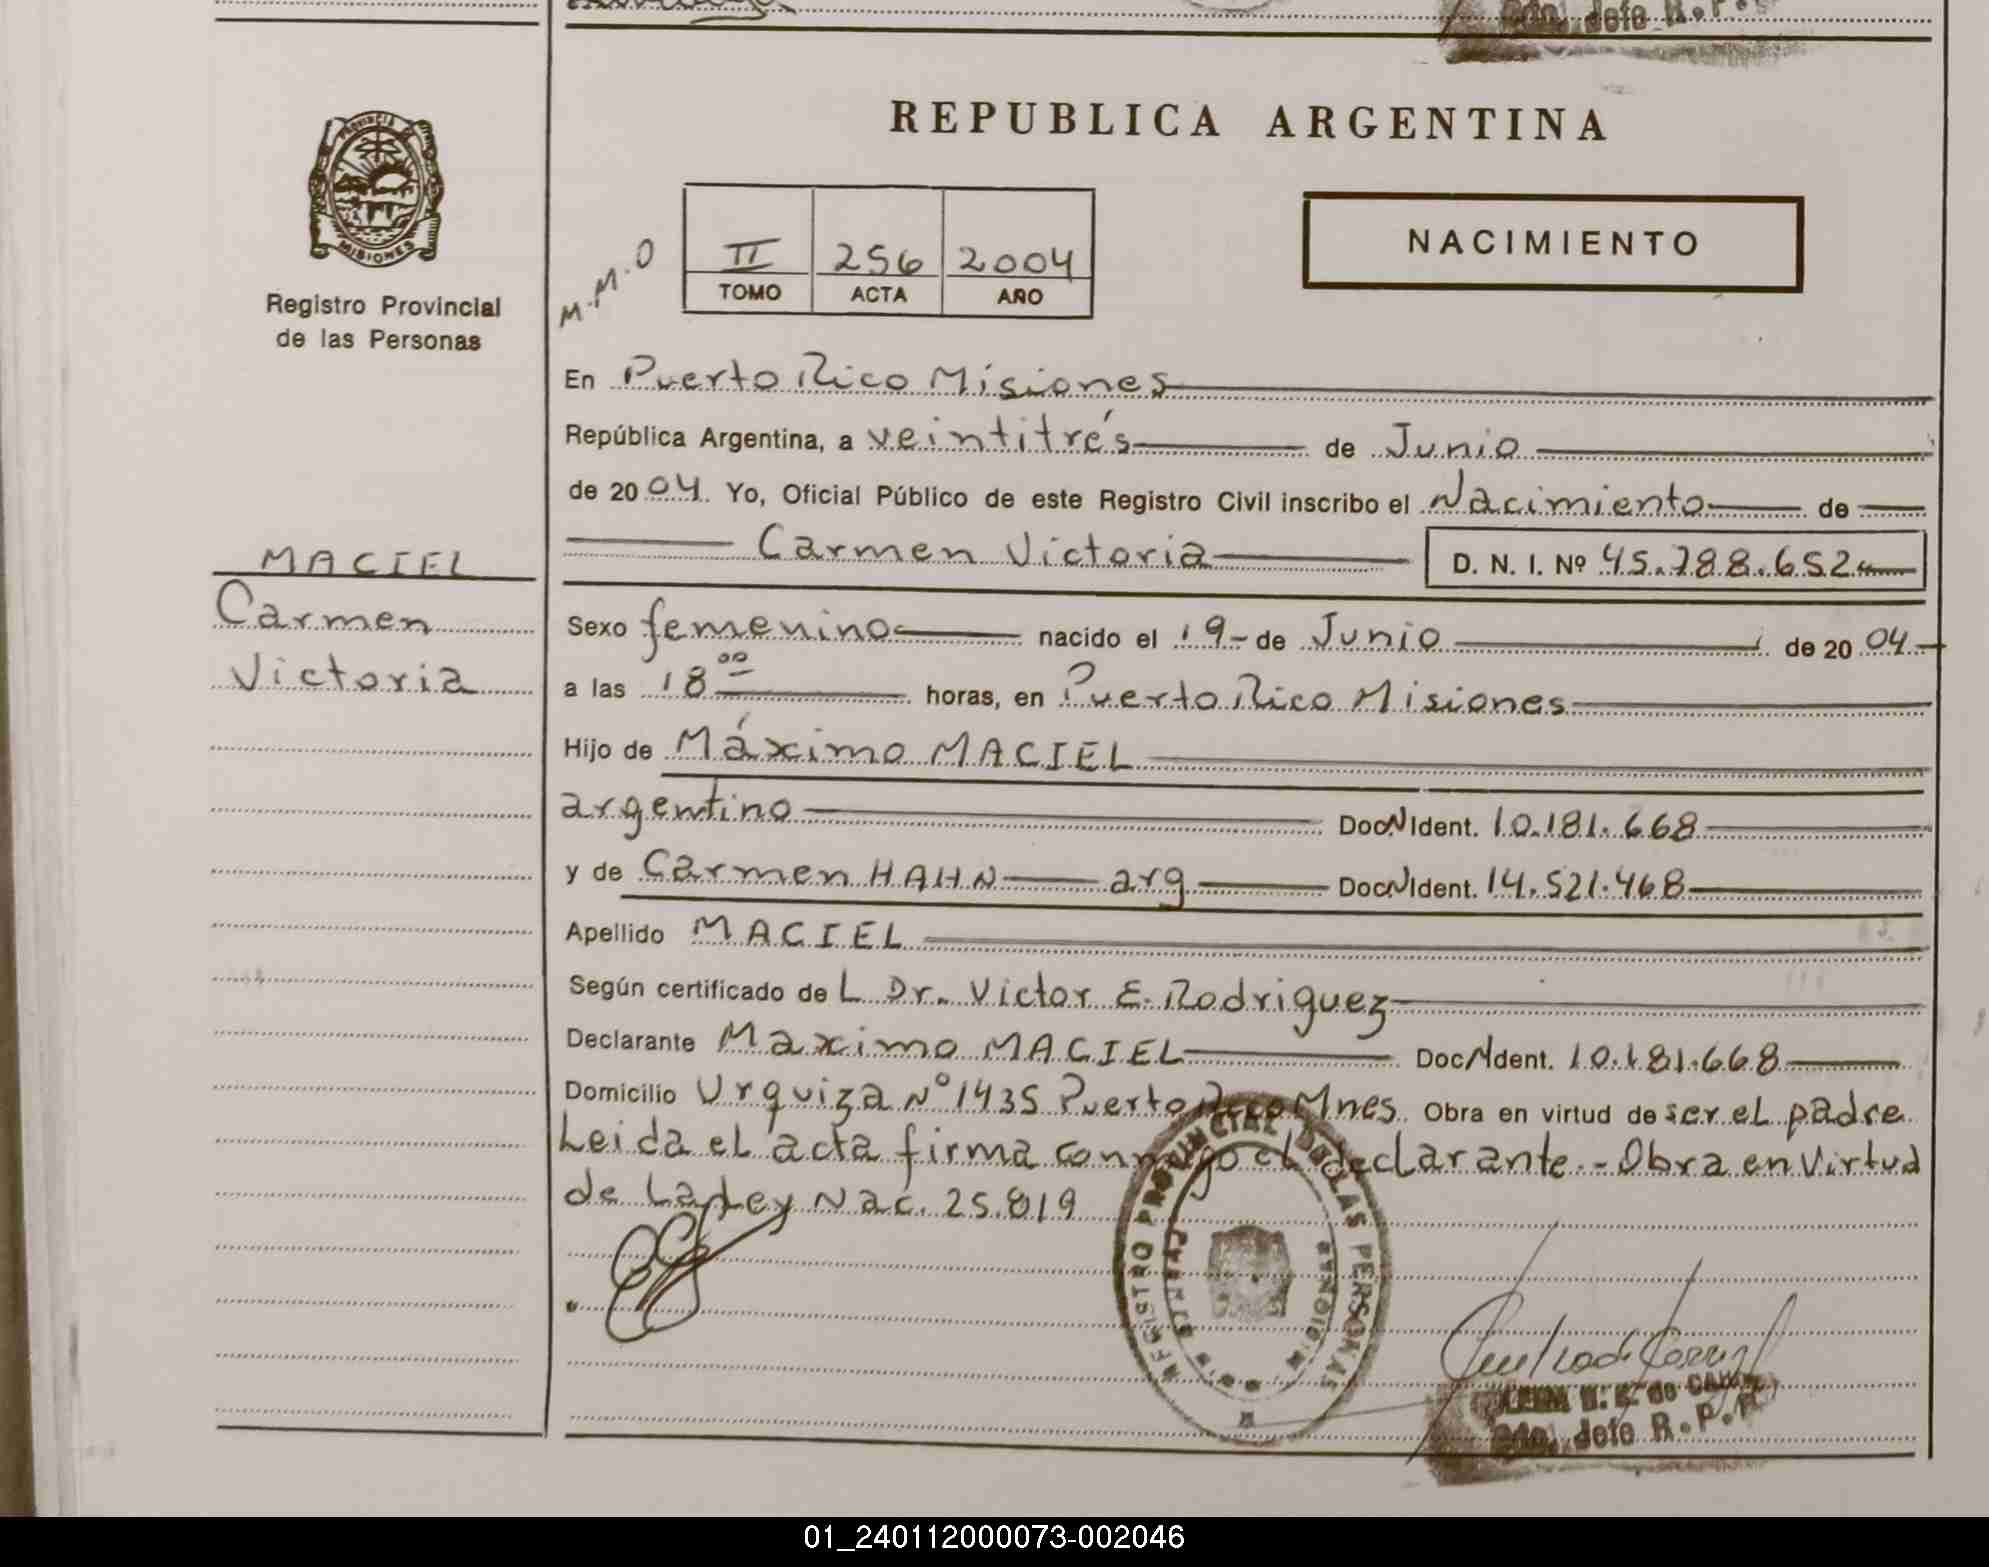 Edo. Jefe R.P.
REPUBLICA ARGENTINA
PROVINCIA DE
MISIONES
Registro Provincial
de las Personas
M.M.O
II 256 2004
TOMO ACTA AÑO
NACIMIENTO
En Puerto Rico Misiones
República Argentina, a veintitrés de Junio
de 2004. Yo, Oficial Público de este Registro Civil inscribo el Nacimiento de
Carmen Victoria D. N. I. Nº 45.788.652
MACIEL
Carmen
Victoria
Sexo femenino nacido el 19 de Junio de 2004
a las 18 00 horas, en Puerto Rico Misiones
Hijo de Máximo MACIEL
argentino Doc N Ident. 10.181.668
y de Carmen HAHN arg Doc N Ident. 14.521.468
Apellido MACIEL
Según certificado de L Dr. Victor E. Rodriguez
Declarante Maximo MACIEL Doc N Ident. 10.181.668
Domicilio Urquiza Nº 1435 Puerto Rico Mnes Obra en virtud de ser el padre
Leida el acta firma conmigo el declarante.- Obra en Virtud
de La Ley Nac. 25.819
REGISTRO PROVINCIAL DE LAS PERSONAS
Jefe R.P.P.
01_240112000073-002046